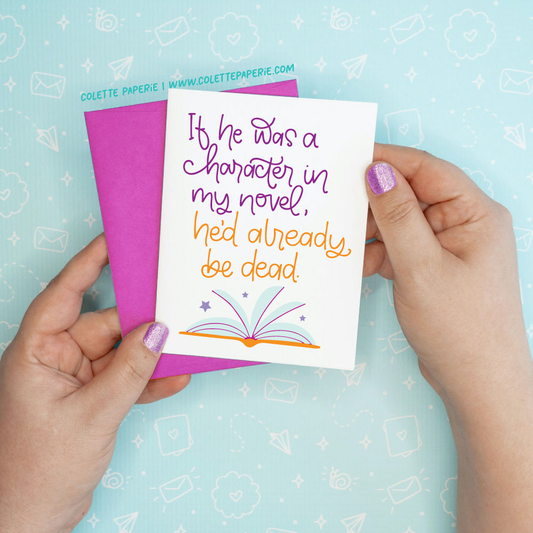 COLETTE PAPERIE | WWW.COLETTEPAPERIE.COM
If he was a
character in
my novel,
he'd already
be dead.